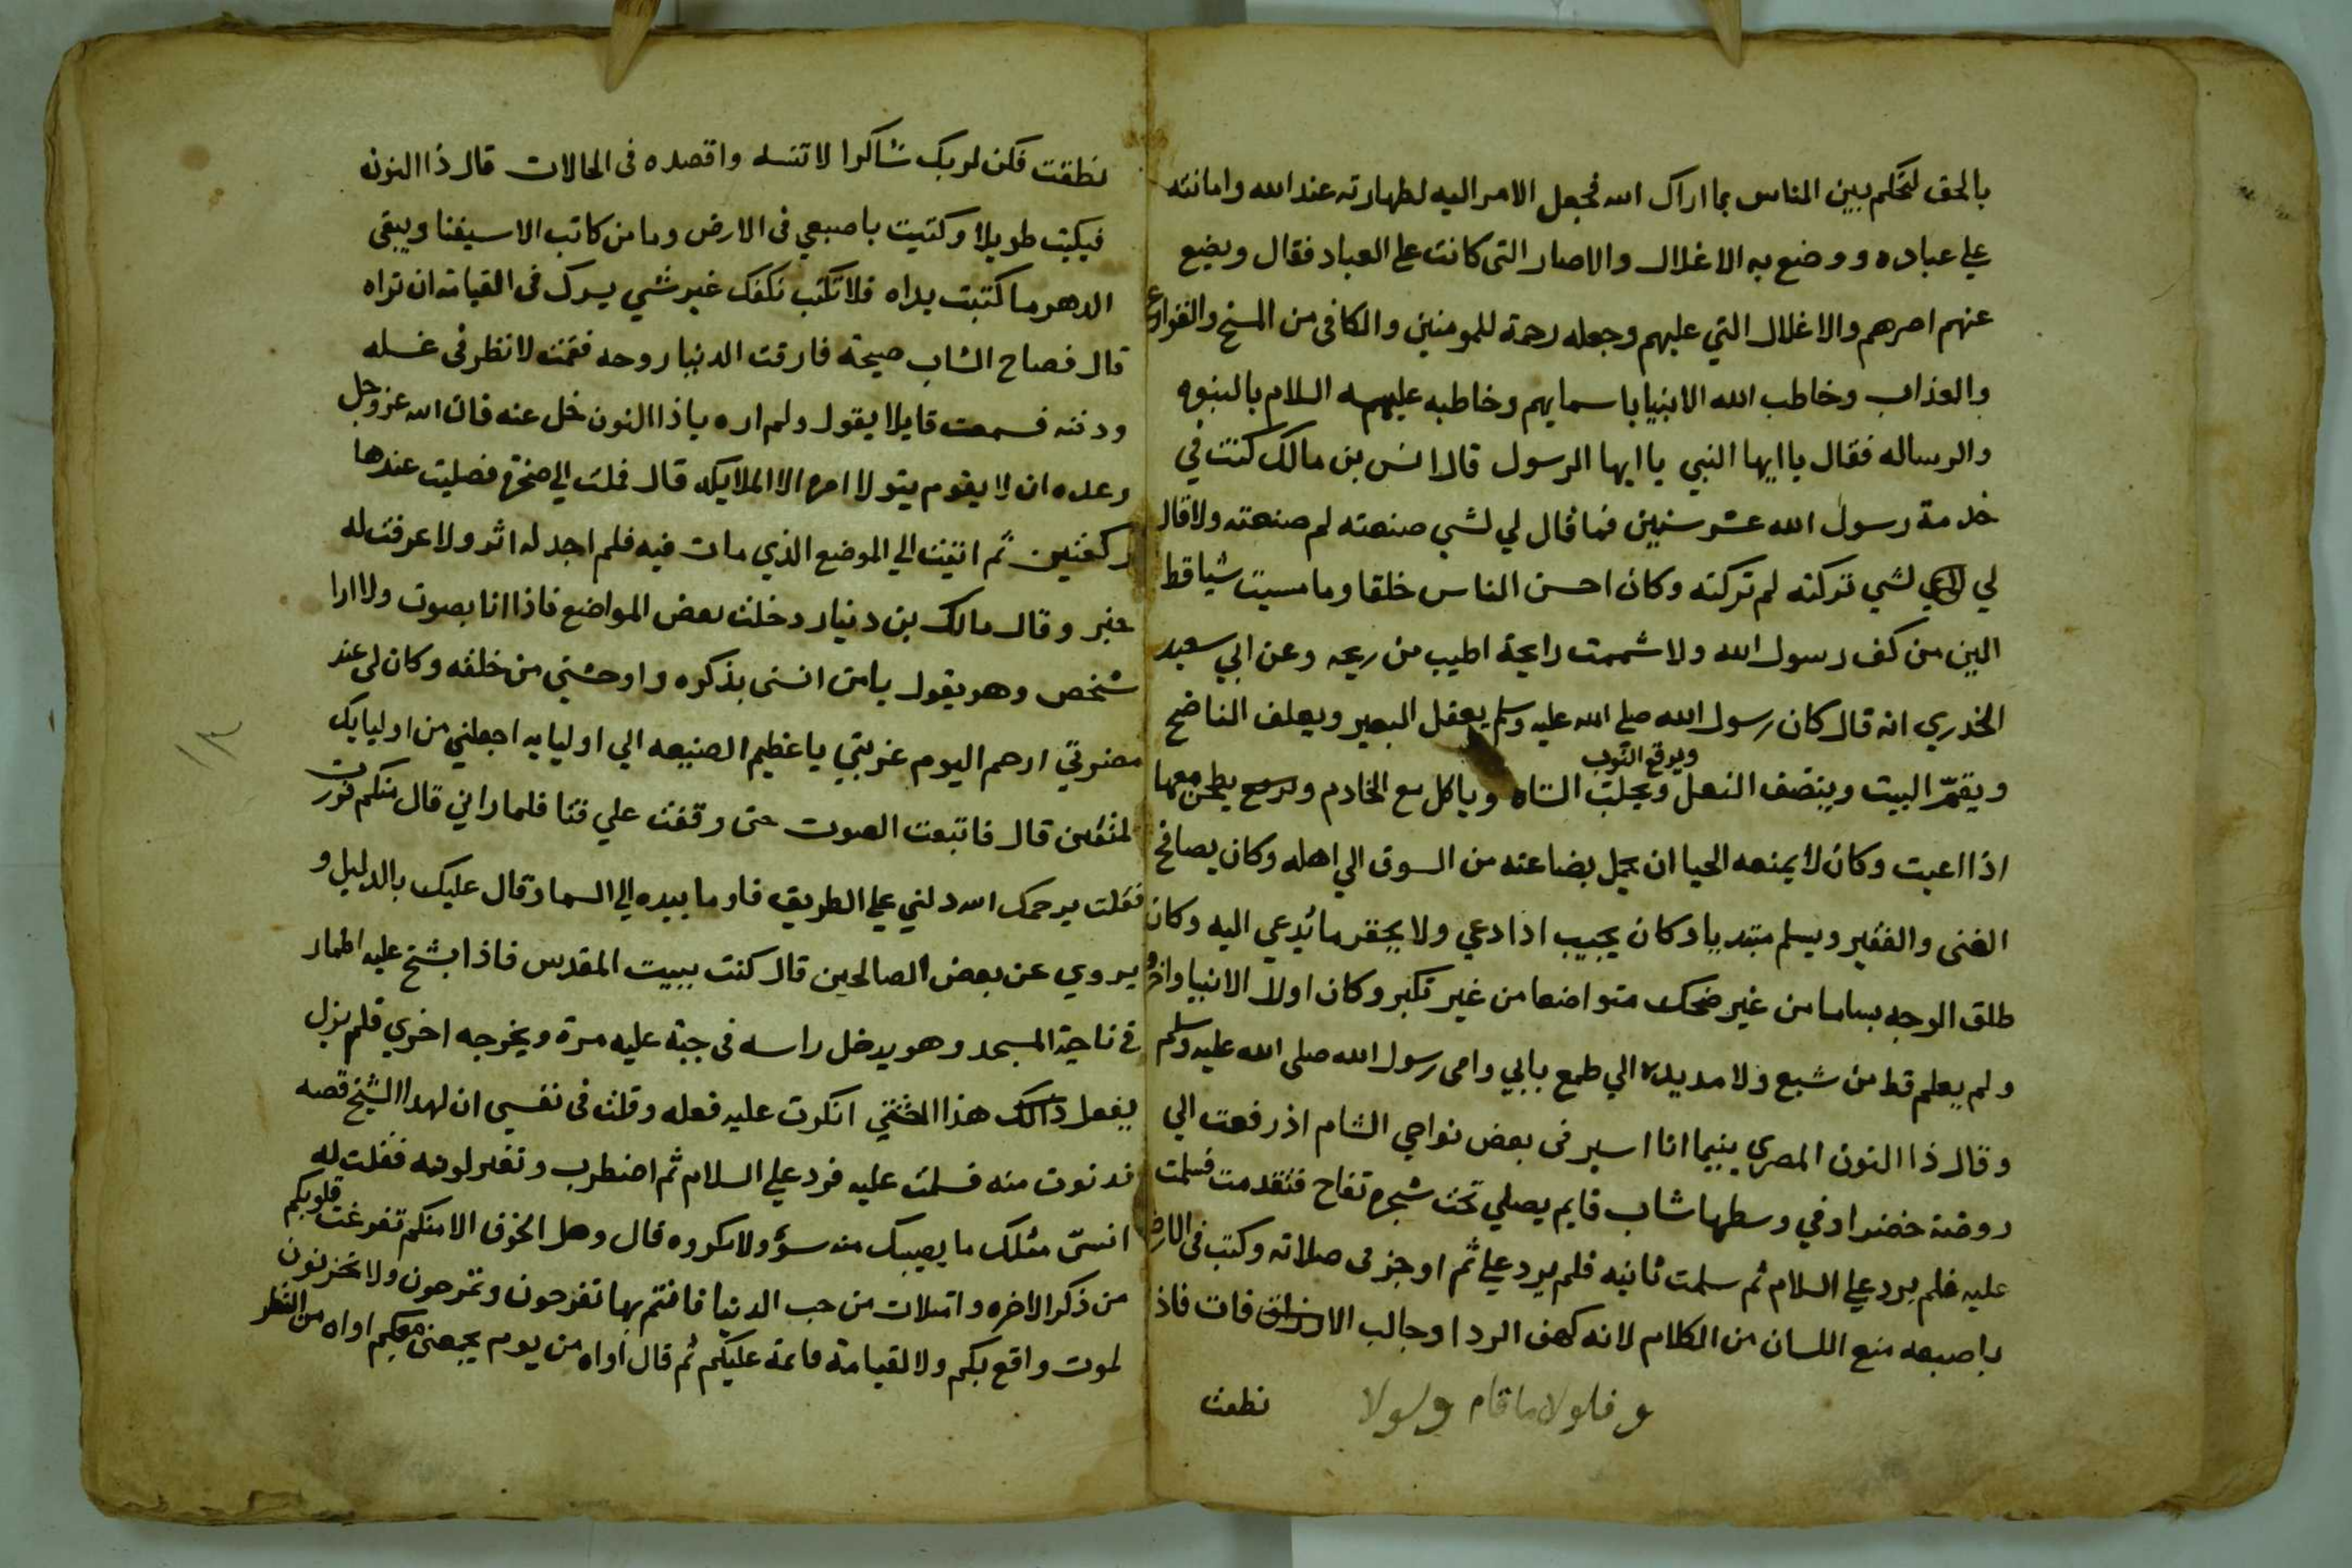 بالحق لتحكم بين الناس بما اراك الله فجعل الامر اليه لطهارته عند الله وامانته
علي عباده ووضع به الاغلال والاصار التى كانت على العباد فقال ويضيع
عنهم اصرهم والاغلال التي عليهم وجعله رحمة للمومنين والكافى من المسخ والقوارع
والعذاب وخاطب الله الانبيا باسمايهم وخاطبه عليهسه السلام بالنبوه
والرساله فقال ياايها النبي ياايها الرسول قال انس بن مالك كنت في
خدمة رسول الله عشر سنين فما قال لي لشي صنعته لم صنعته ولا قال
لي لشي تركته لم تركته وكان احسن الناس خلقا وما مسيت شيا قط
الين من كف رسول الله ولا شممت رايحة اطيب من ريحه وعن ابي سعيد
الخدري انه قال كان رسول الله صلى الله عليه وسلم يعقل البعير ويعلف الناضح
ويرقع الثوب
ويقمّ البيت وينصف النعل ويحلب الشاه وياكل مع الخادم ويطحن معها
اذا اعيت وكان لا يمنعه الحيا ان يحمل بضاعته من السوق الي اهله وكان يصافح
الغنى والفقير ويسلم مبتديا وكان يجيب اذا دعي ولا يحقر ما يُدعي اليه وكان
طلق الوجه بساما من غير ضحك متواضعا من غير تكبر وكان اولا الانبيا واخر
ولم يعلم قط من شبع ولا مد يده الي طمع بابي وامى رسول الله صلى الله عليه وسلم
وقال ذا النون المصري بينما انا اسير فى بعض نواحي الشام اذ رفعت الي
روضة خضرا وفي وسطها شاب قايم يصلي تحت شجرة تفاح فتقدمت فسلمت
عليه فلم يرد علي السلام ثم سلمت ثانيه فلم يرد علي ثم اوجز فى صلاته وكتب فى الارض
باصبعه منع اللسان من الكلام لانه كهف الردا وجالب الافات فاذ
وفلولا ما قام ولولا
نطقت
نطقت فكن لربك شاكرا لا تنسه واقصده فى الحالات قال ذا النون
فبكيت طويلا وكتبت باصبعي فى الارض وما من كاتب الا سيفنا ويبقى
الدهر ما كتبت يداه فلا تكتب بكفك غير شي يسرك فى القيامة ان تراه
قال فصاح الشاب صيحة فارقت الدنيا روحه فقمت لانظر فى غسله
ودفنه فسمعت قايلا يقول ولم اره ياذا النون خل عنه فان الله عز وجل
وعده ان لا يقوم يتولا امره الا الملايكه قال فملت الي صخرة فصليت عندها
ركعتين ثم اتيت الي الموضع الذي مات فيه فلم اجد له اثر ولا عرفت له
خبر وقال مالك بن دينار دخلت بعض المواضع فاذا انا بصوت ولا ارا
شخص وهو يقول يامن انسنى بذكره واوحشني من خلقه وكان لى عند
ارحم اليوم غربتي ياعظيم الصنيعه الي اوليايه اجعلني من اوليايك
المتقين قال فاتبعت الصوت حتى وقفت علي فتا فلما راني قال منكم فررت
فقلت يرحمك الله دلني علي الطريق فاوما بيده الي السما وقال عليك بالدليل و
يروي عن بعض الصالحين قال كنت ببيت المقدس فاذا بشخ عليه اطمار
فى ناحية المسجد وهو يدخل راسه فى جبة عليه مرة ويخرجه اخري فلم يزل
يفعل ذالك هذا انكرت عليه فعله وقلت فى نفسي ان لهذا الشيخ قصه
فدنوت منه فسلمت عليه فرد علي السلام ثم اضطرب وتغير لونه فقلت له
انسىّ مثلك ما يصيبك منه سؤ ولا مكروه قال وهل الخوف الا منكم تفرغت قلوبكم
من ذكر الاخره وامتلات من حب الدنيا فانتم بها تفرحون وتمرحون ولا تحزنون
لموت واقع بكم ولا لقيامة قايمة عليكم ثم قال اواه من يوم يجمعنى معكم اواه من النظر
١٣